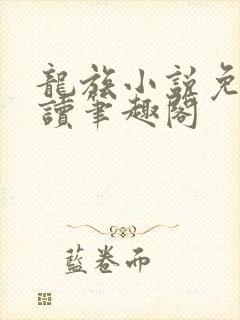 龍族小說免
讀筆趣閣
藍卷而